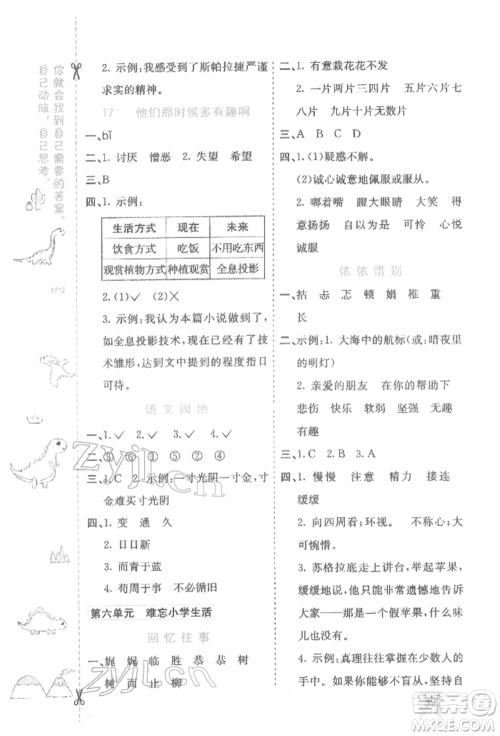 你就会找到自己需要的答案。
自己动脑，自己思考，
2. 示例：我感受到了斯帕拉捷严谨
求实的精神。
17 他们那时候多有趣啊
一、bǐ
二、1. 讨厌 憎恶 2. 失望 希望
三、B
四、1. 示例：
生活方式 现在 未来
饮食方式 吃饭 不用吃东西
观赏植物方式 种植观赏 全息投影
2. (1)✓ (2)✓
3. 示例：我认为本篇小说做到了，
如全息投影技术，现在已经有了技
术雏形，达到文中描述的程度指日
可待。
语文园地
一、1. ✓ 2. ✓ 3. ✓ 4. ✓
三、1. C 2. D 3. 示例：一寸光阴一寸金，寸
金难买寸光阴
四、1. 变 通 久
2. 日日新
3. 而青于蓝
4. 苟周于事 不必循旧
第六单元 难忘小学生活
回忆往事
一、娓 娓 临 胜 恭 恭 树
树 而 止 柳
二、1. 有意栽花花不发
2. 一片两片三四片 五片六片七
八片 九片十片无数片
三、A B C D
四、1. (1)疑惑不解。
(2)诚心诚意地佩服或服从。
2. 嘟着嘴 蹬大眼睛 大摇大
摆 自由自在 可怜 心悦
诚服
依依惜别
一、拮 忐 忑 顿 娟 稚 重
长
二、示例：1. 大海中的航标(或：暗夜里
的明灯)
2. 亲爱的朋友 在你的帮助下
悲伤 快乐 软弱 坚强 无趣
有趣
三、1. C 2. B 3. A
四、1. 慢慢 注意 精力 接连
缓缓
2. 向四周看：环视。 不称心：大
可惋惜。
3. 苏格拉底走上讲台，举起苹果，
缓缓地说，非常遗憾地告诉
大家——那是一个假苹果，什么味
儿也没有。
4. 示例：真理往往掌握在少数人的
手中。
zyjl.cn
zyjl.cn
答案圈